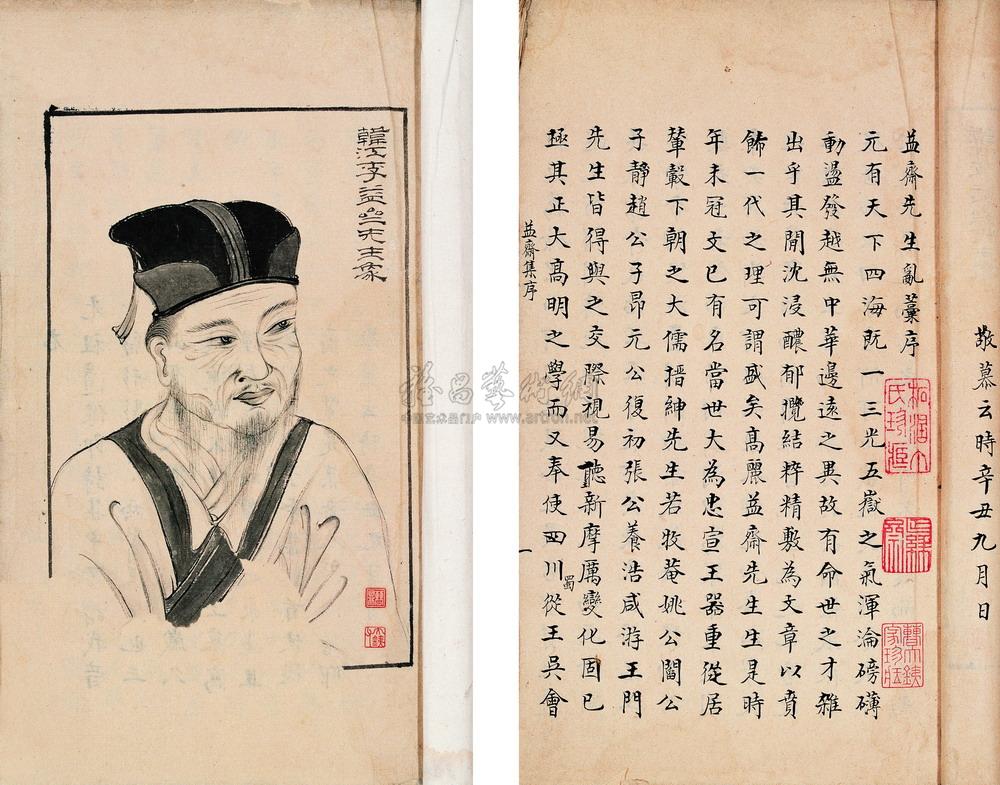 韓江李益齋先生像
敬慕云時辛丑九月日
益齋先生亂藁序
元有天下四海既一三光五嶽之氣渾淪磅礴
動盪發越無中華邊遠之異故有命世之才雜
出乎其間沈浸醲郁攬結粹精敷為文章以賁
餙一代之理可謂盛矣髙麗益齋先生生是時
年未冠文已有名當世大為忠宣王器重從居
輦轂下朝之大儒搢紳先生若牧菴姚公閻公
子靜趙公子昂元公復初張公養浩咸游王門
先生皆得與之交際視易聽新摩厲變化固已
極其正大髙明之學而又奉使四川從王吳會
蜀
益齋集序
一
www.artron.net